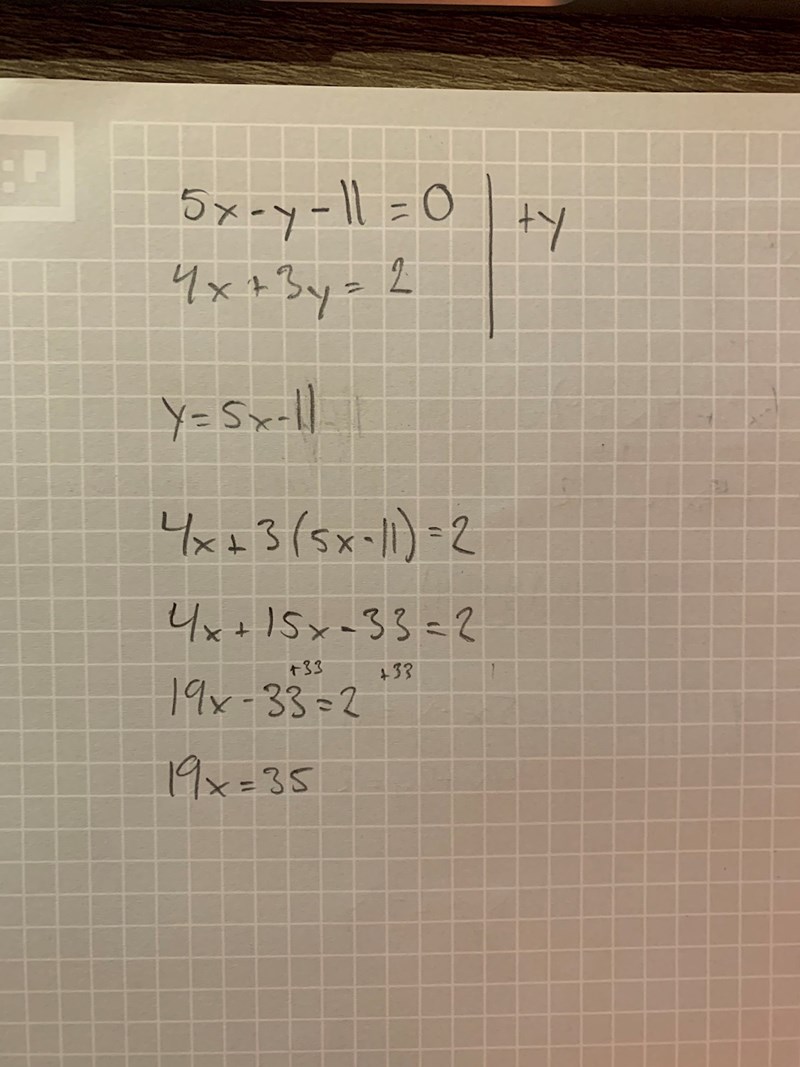 5x - y - 11 = 0 | +y
4x + 3y = 2
y = 5x - 11
4x + 3(5x - 11) = 2
4x + 15x - 33 = 2
+33 +33
19x - 33 = 2
19x = 35